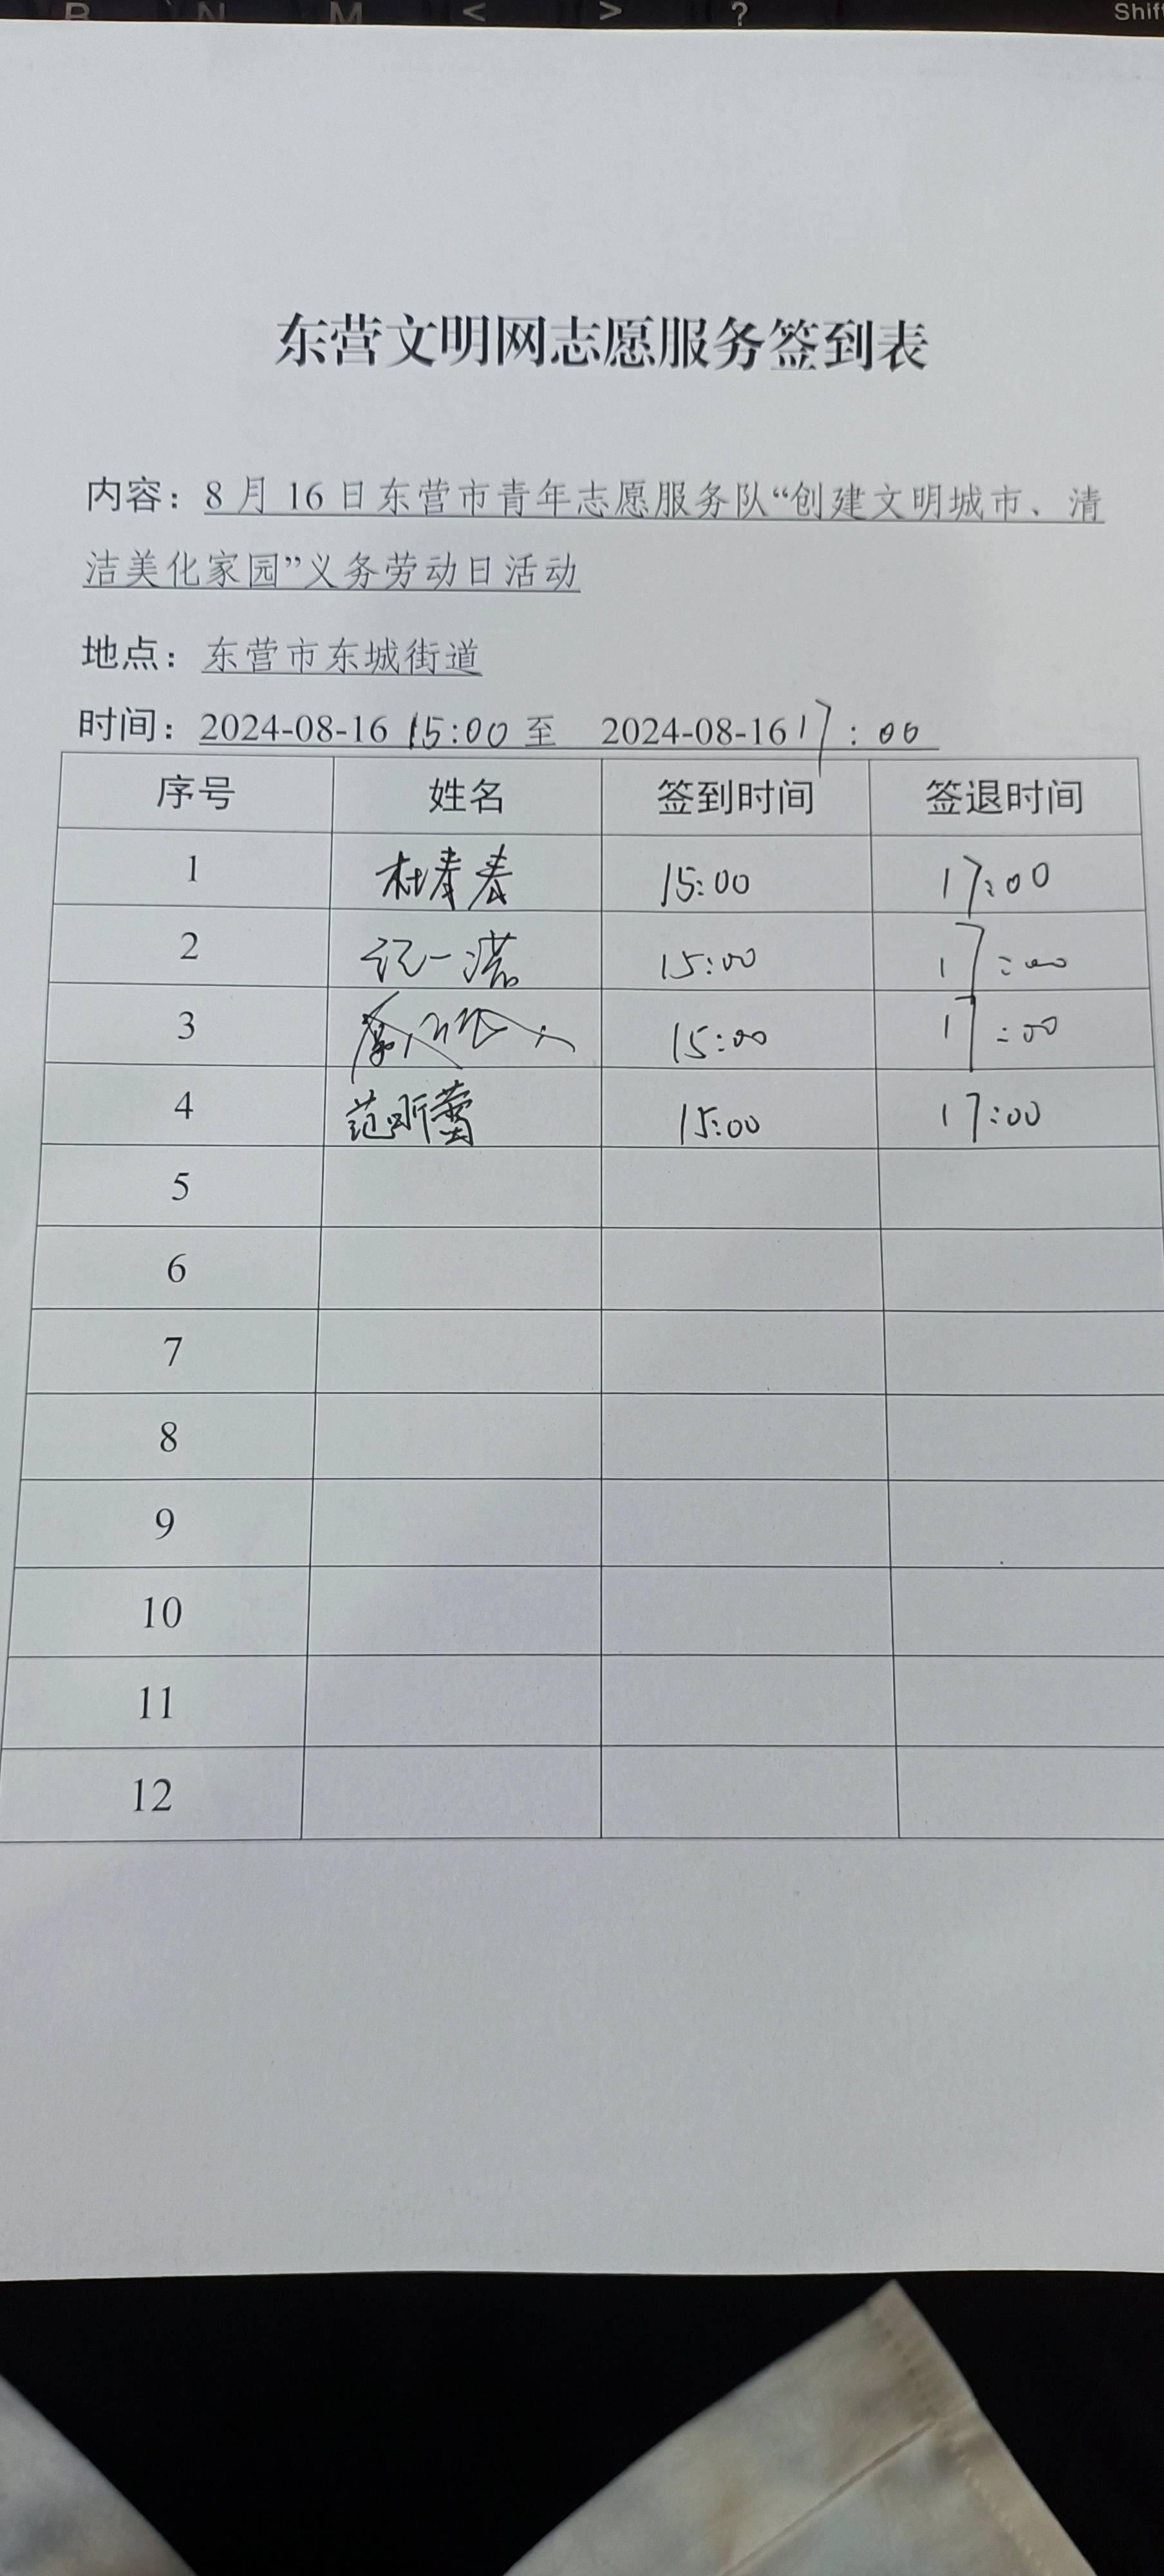 B N M < > ? Shift
东营文明网志愿服务签到表
内容：8 月 16 日东营市青年志愿服务队“创建文明城市、清
洁美化家园”义务劳动日活动
地点：东营市东城街道
时间：2024-08-16 15:00 至 2024-08-16 17:00
序号 姓名 签到时间 签退时间
1 杜青春 15:00 17:00
2 15:00 17:00
3 15:00 17:00
4 范昕蕾 15:00 17:00
5
6
7
8
9
10
11
12